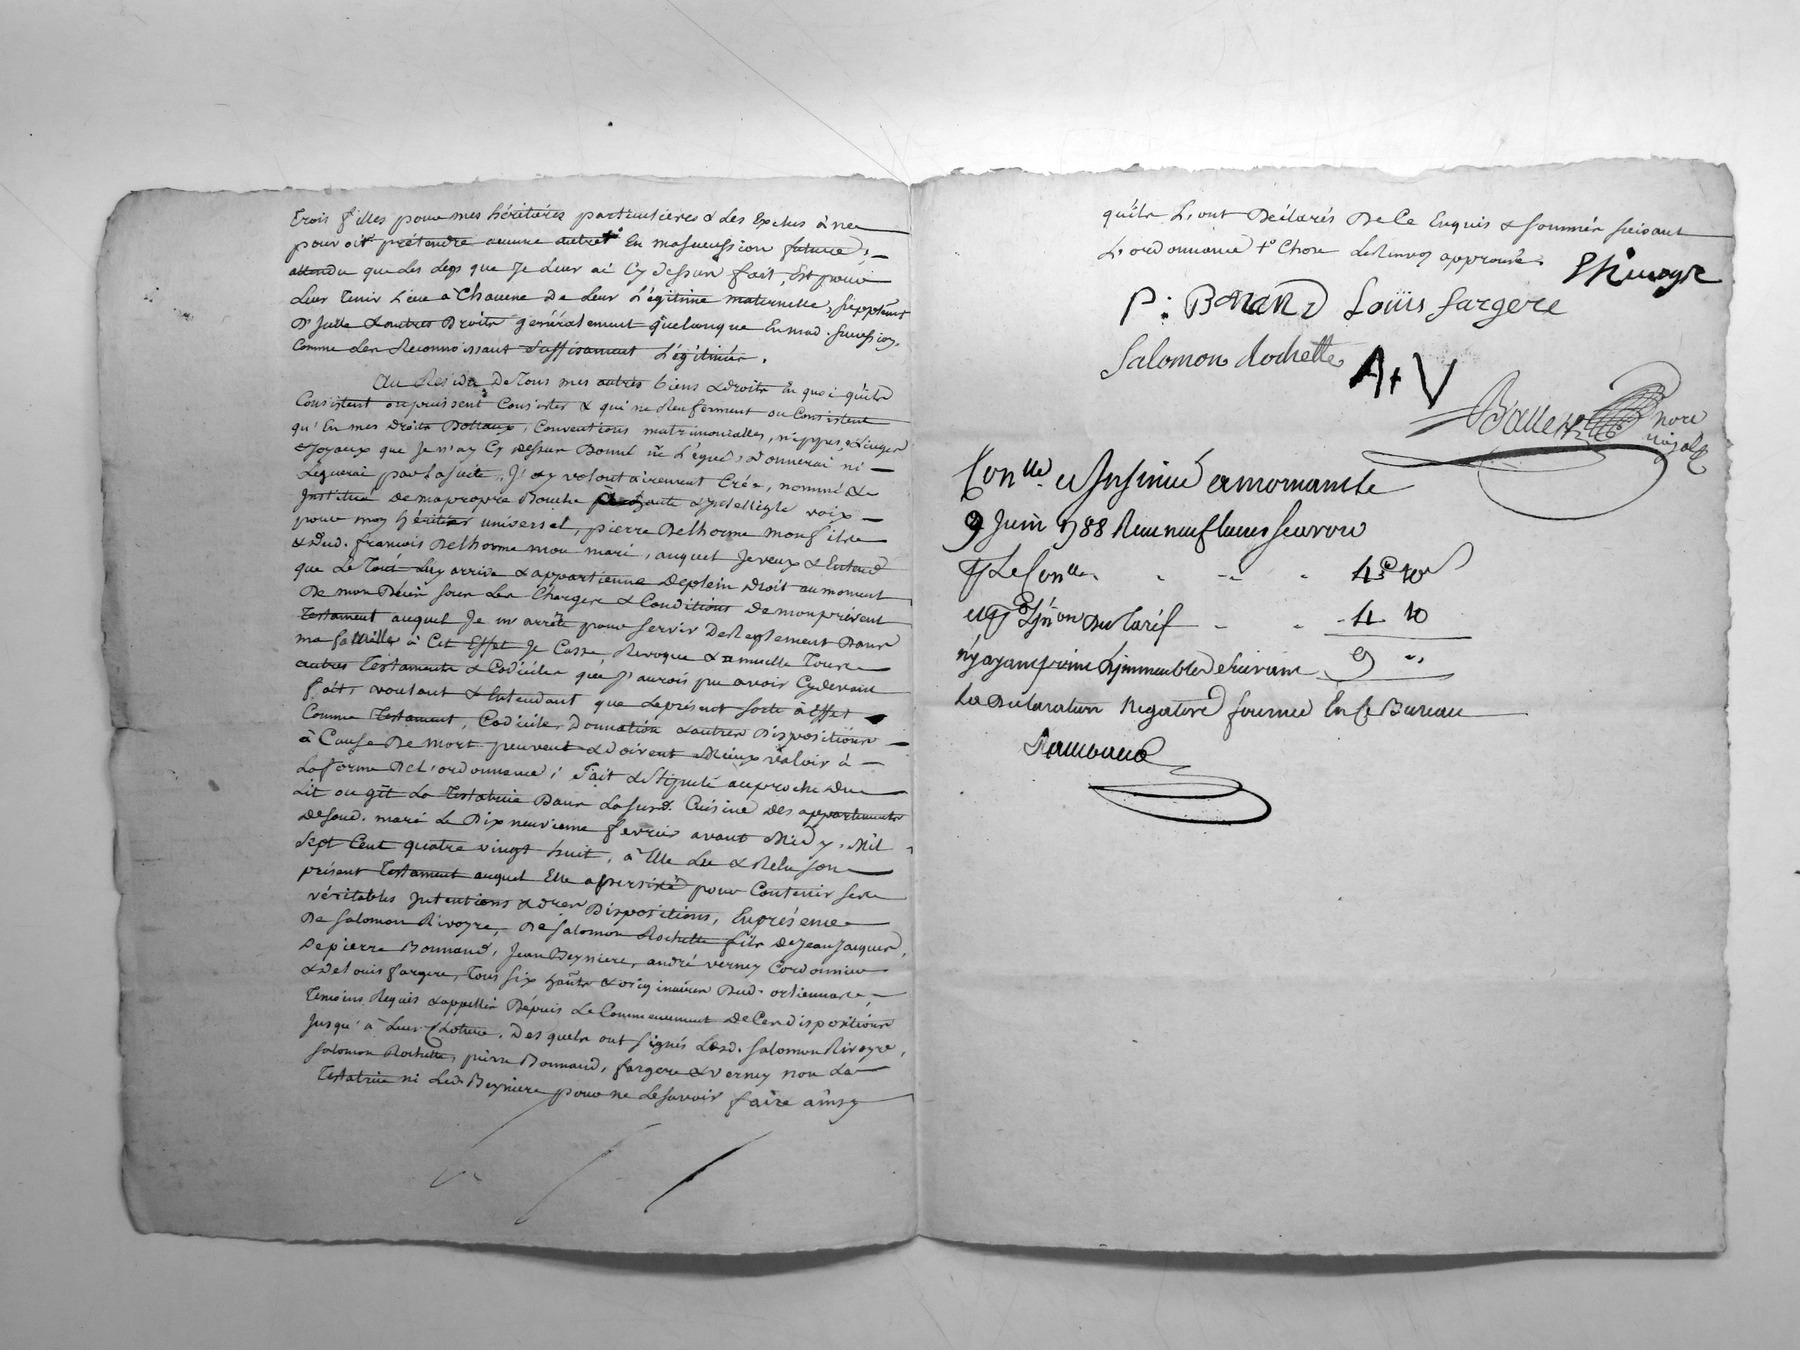 trois filles pour mes héritières particulières & les Exclus à ne
pouvoir prétendre aucune autre +° En ma succession future,
attendu que les legs que Je leur ai Cy dessus fait, Est pour
leur tenir lieu à Chacune de leur légitime maternelle, supplément
D'Jcelle & autres Droits généralement quelconque En mad. succession,
Comme les Reconnoissant suffisament légitimées.
Au Résidu De tous mes autres biens & droits En quoi qu'ils
Consistent ou puissent Consister & qui ne Renferment ou Consistent
qu'En mes droits Dottaux, Conventions matrimonialles, nippes, & linges
& Joyaux que Je n'ay Cy dessus Donné ni légué, Donnerai ni
léguerai par la suite, J'ay volontairement Créé, nommé &
Jnstitué de ma propre Bouche à haute & Jntelligle voix
pour moy héritier universel, pierre Delhorme mon fils
& dud. francois Delhorme mon mari, auquel Je veux & Entend
que le tout luy arrive & appartienne de plein droit au moment
De mon Décès sous les Charges & Conditions De mon présent
testament auquel Je m'arrête pour servir De Reglement Dans
ma famille à Cet Effet Je Casse, Revoque & annulle tous
autres testaments & Codiciles que J'aurois pu avoir Cydevant
fait, voulant & Entendant que le présent sorte à Effet
Comme testament, Codicile, Donnation & autres Dispositions
à Cause De mort peuvent & doivent Mieux valoir à
la forme De l'ordonnance; fait & Stipulé au proche du
lit ou gît la testatrice Dans la susd. Cuisine des appartements
de soud. mari le Dix neuvieme fevrier avant Midy, Mil
sept Cent quatre vingt huit, à Elle lu & Relu son
présent testament auquel Elle a persisté pour Contenir ses
véritables Jntentions & dres Dispositions, En présence
De Salomon Rivoyre, De Salomon Rochette fils de Jean Jacques,
De pierre Bonnand, Jean Beyniere, andré verney Cordonnier
& de louis fargere, tous six hants & originaires Dud.
temoins Requis & appellés Dépuis le Commencement de Ces dispositions
Jusqu'à leur Cloture, Desquels ont signés lesd. Salomon Rivoyre,
Salomon Rochette, pierre Bonnand, fargere & verney non la
testatrice ni led. Beyniere pour ne le savoir faire ainsy
qu'ils l'ont Déclarés De Ce Enquis & sommés suivant
l'ordonnance +° Chose le Renvoy approuvé. SRivoyre
P: Bonand Louis fargere
Salomon Rochette A+V
Ballet nore
royal
Conllé et Insinué a
9 Juin 1788 Recu neuf livres scavoir
P. le Conlle 4# 10s
et P. l'Jn'on du tarif 4 10
n'y ayant point d'immeubles suivant 9 "
la déclaration Negative fournie En Ce Bureau